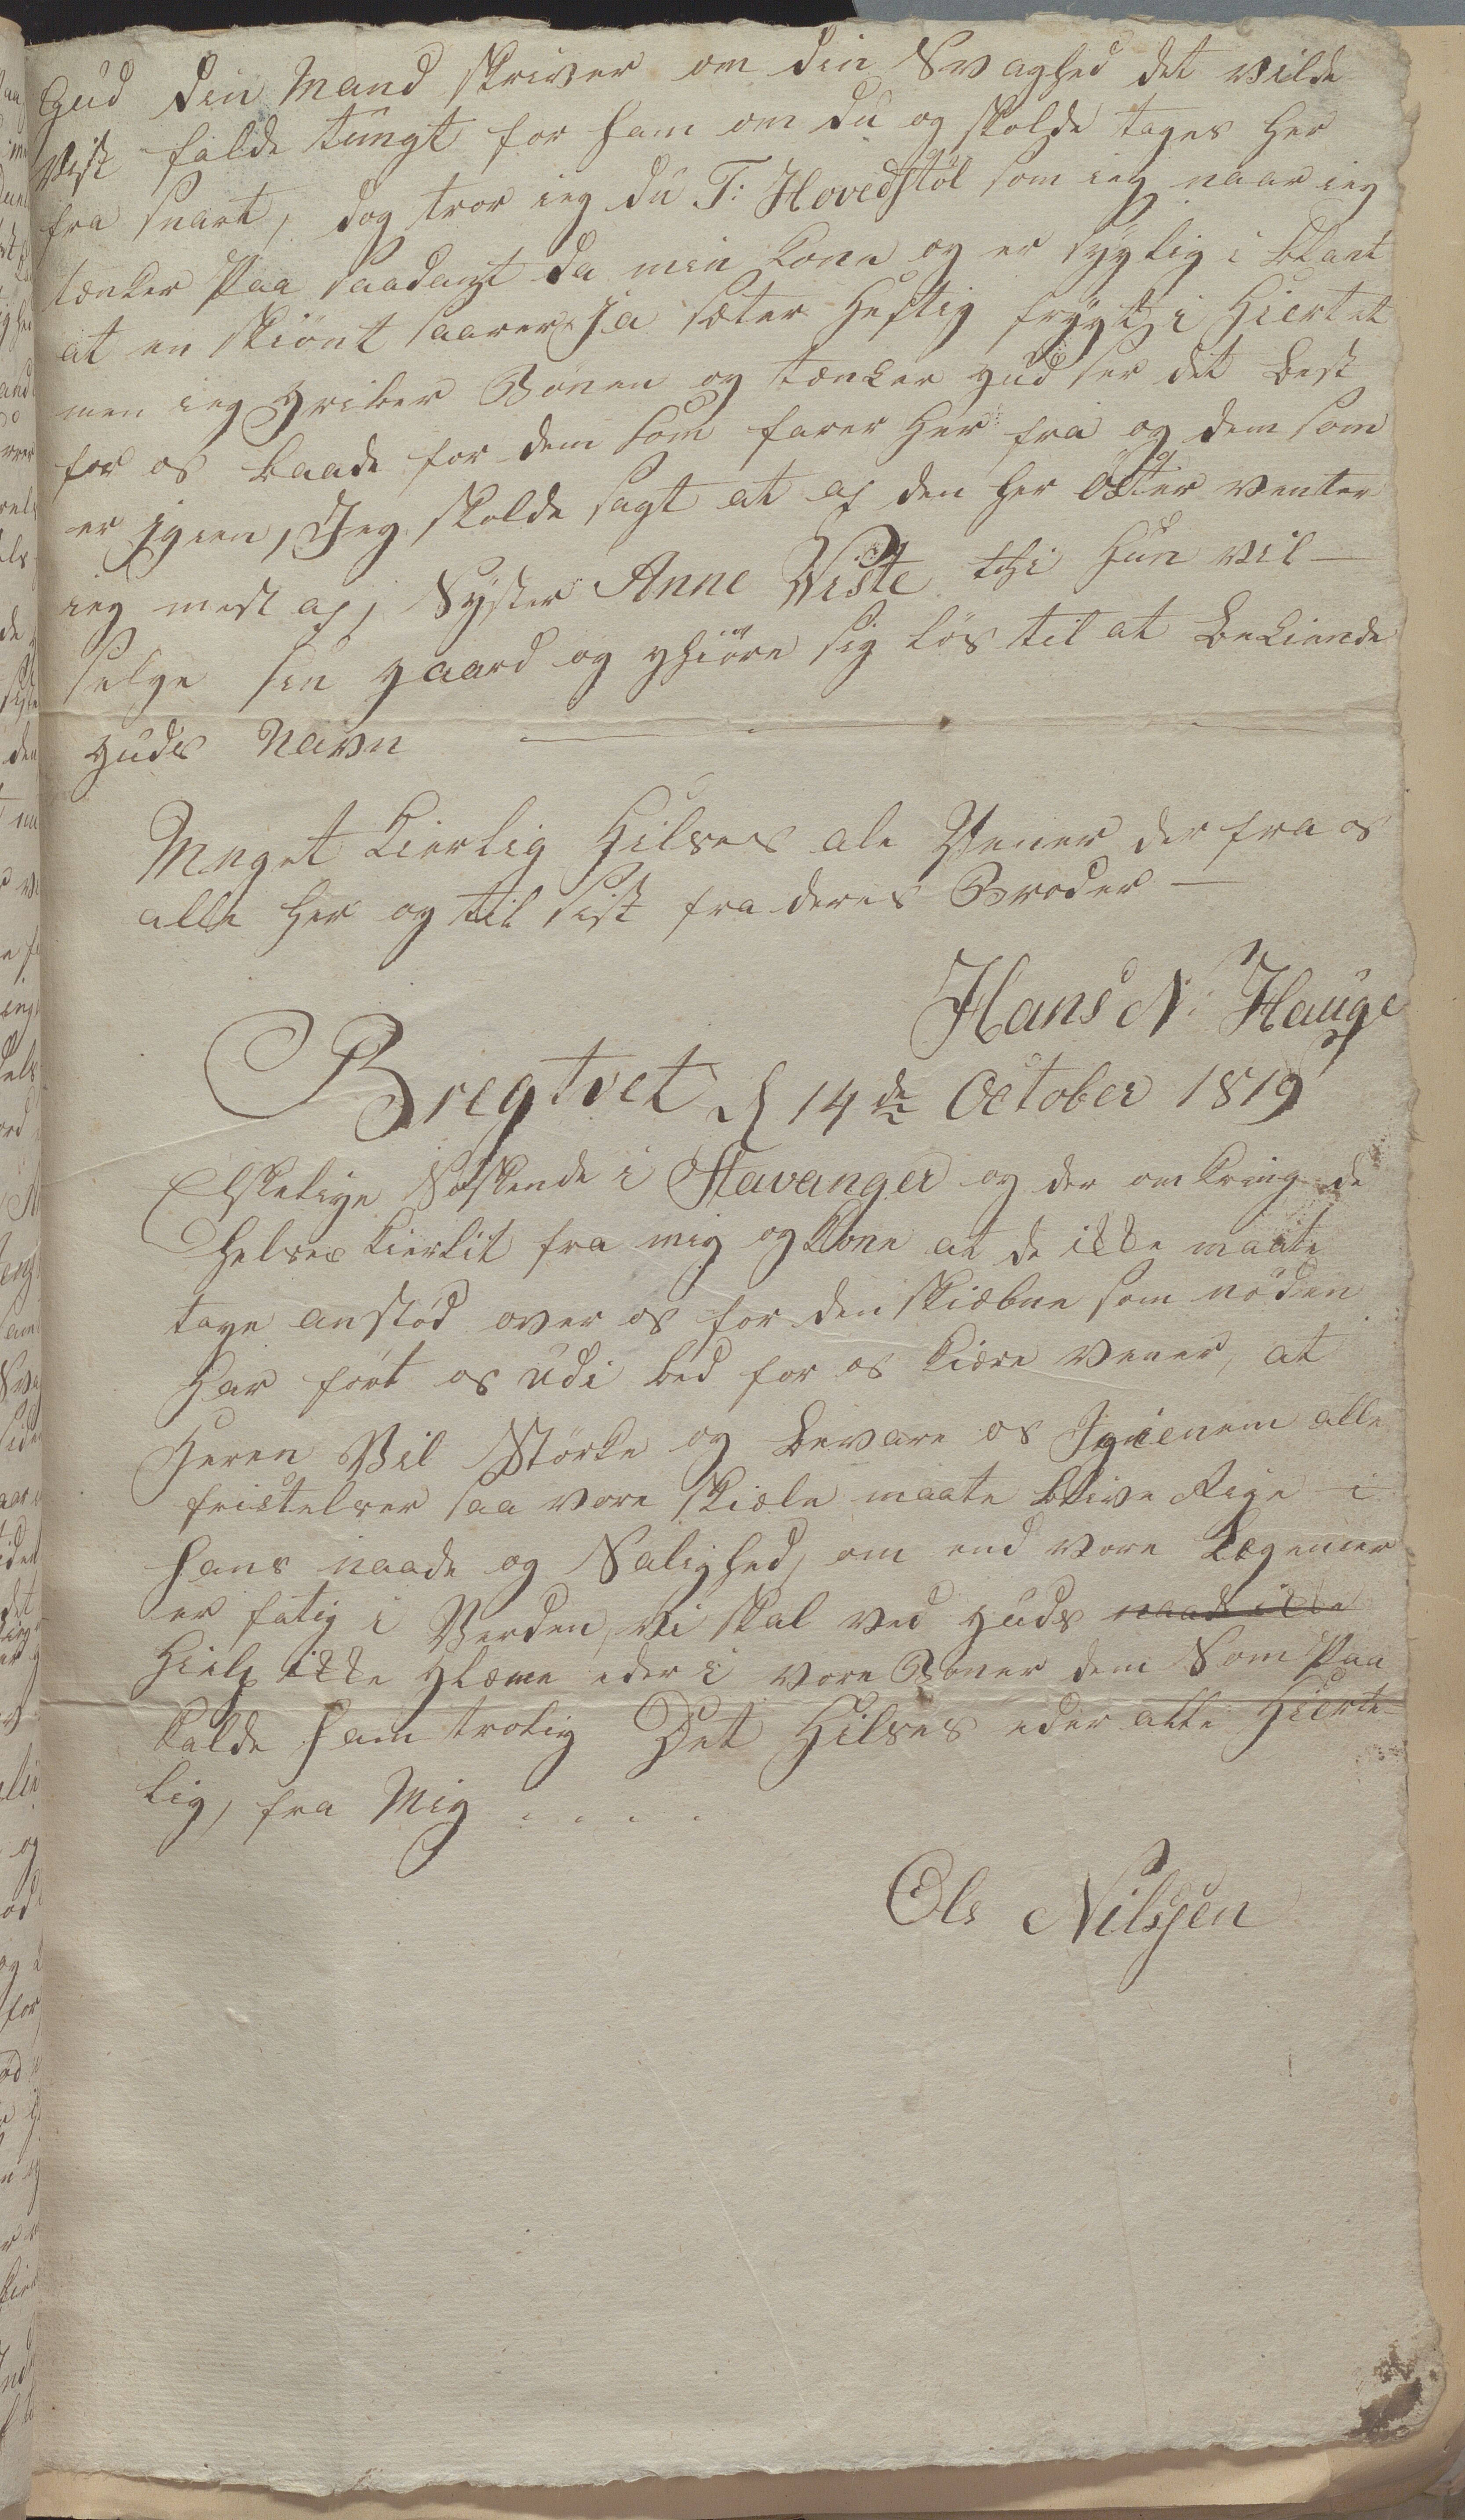 Gud din Mand skriver om din Svaghed det vilde
vist falde tungt for ham om du og skolde tages her
fra snart, dog tror ieg du T: Hovedstöl som ieg naar ieg
tænker Paa saadant da min Kone og er sygelig i blant
at en skiönt saarer Ja sæter Heftig frygt i Hiertet
men ieg griber Bönen og tænker gud ser det best
for os baade for dem som farer her fra og dem som
er igien, Jeg skolde sagt at af den her Öster venter
ieg mest af, Syster Anne Viste thi hun vil
selge sin gaard og ghiöre sig lös til at bekiende
guds Navn
Meget kierlig Hilses ale Vener der fra os
alle her og til sist fra deres Broder
Hans N. Hauge
Bregtvet d 14de October 1819
Elskelige Söskende i Stavanger og der omkring de
helses kierlit fra mig og Kone at de ikke maate
tage anstöd over os for den skiæbne som nöden
har fört os udi bed for os kiære vener, at
Heren Vil Störke og bevare os Igienem alle
fristelser saa vore skiæle maate blive Rige i
hans naade og Salighed, om end vore Legemer
er fatig i Verden, vi skal ved guds naade ikke
Hielp ikke glæme eder i vore Böner dem Som Paa
kalde ham trolig Det Hilses eder alle Hierte
lig, fra Mig . . . .
Ole Nilssen